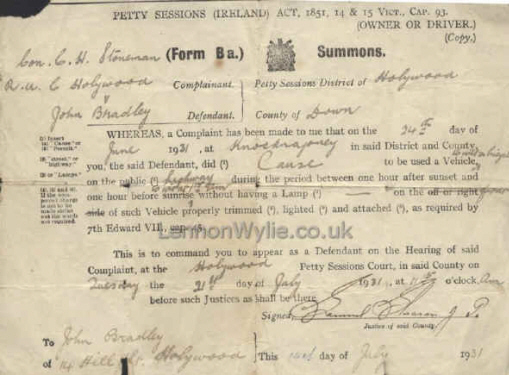 PETTY SESSIONS (IRELAND) ACT, 1851, 14 & 15 VICT., CAP. 93.
(OWNER OR DRIVER.)
(Copy.)
Con. C. H. Stoneman (Form Ba.) Summons.
R.U.C Holywood Complainant. Petty Sessions District of Holywood
v
John Bradley Defendant. County of Down
WHEREAS, a Complaint has been made to me that on the 24th day of
June 1931, at Knocknagoney in said District and County,
you, the said Defendant, did (¹) Cause to be used a Vehicle,
on the public (²) highway during the period between one hour after sunset and
one hour before sunrise without having a Lamp (³) on the off or right
side of such Vehicle properly trimmed (⁴), lighted and attached (⁵), as required by
7th Edward VII., cap. 45.
LennonWylie.co.uk
This is to command you to appear as a Defendant on the Hearing of said
Complaint, at the Holywood Petty Sessions Court, in said County on
Tuesday the 21st day of July 1931, at o'clock,
before such Justices as shall be there.
Signed, Samuel J.P.
Justice of said County.
To John Bradley
of 14 Hill St. Holywood This day of July 1931